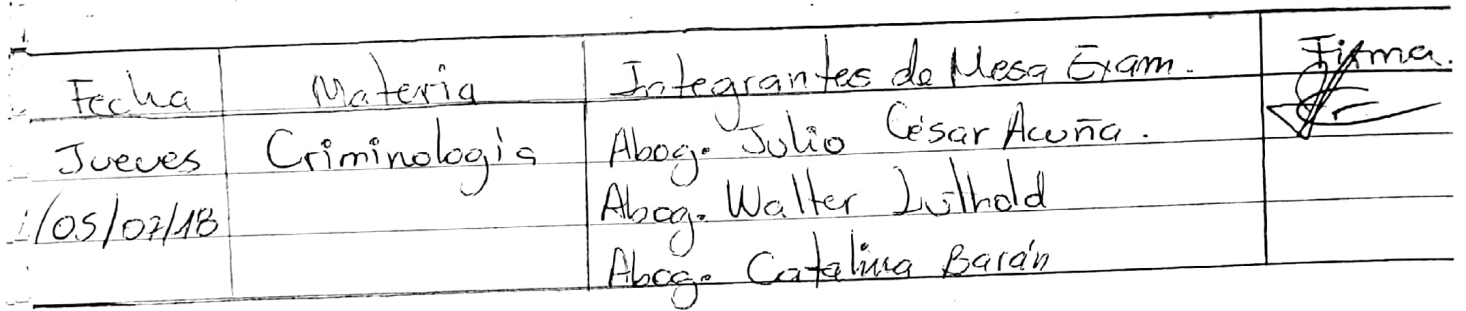 Fecha Materia Integrantes de Mesa Exam. Firma.
Jueves Criminología Abog. Julio César Acuña.
/05/07/18 Abog. Walter Lüthold
Abog. Catalina Barán